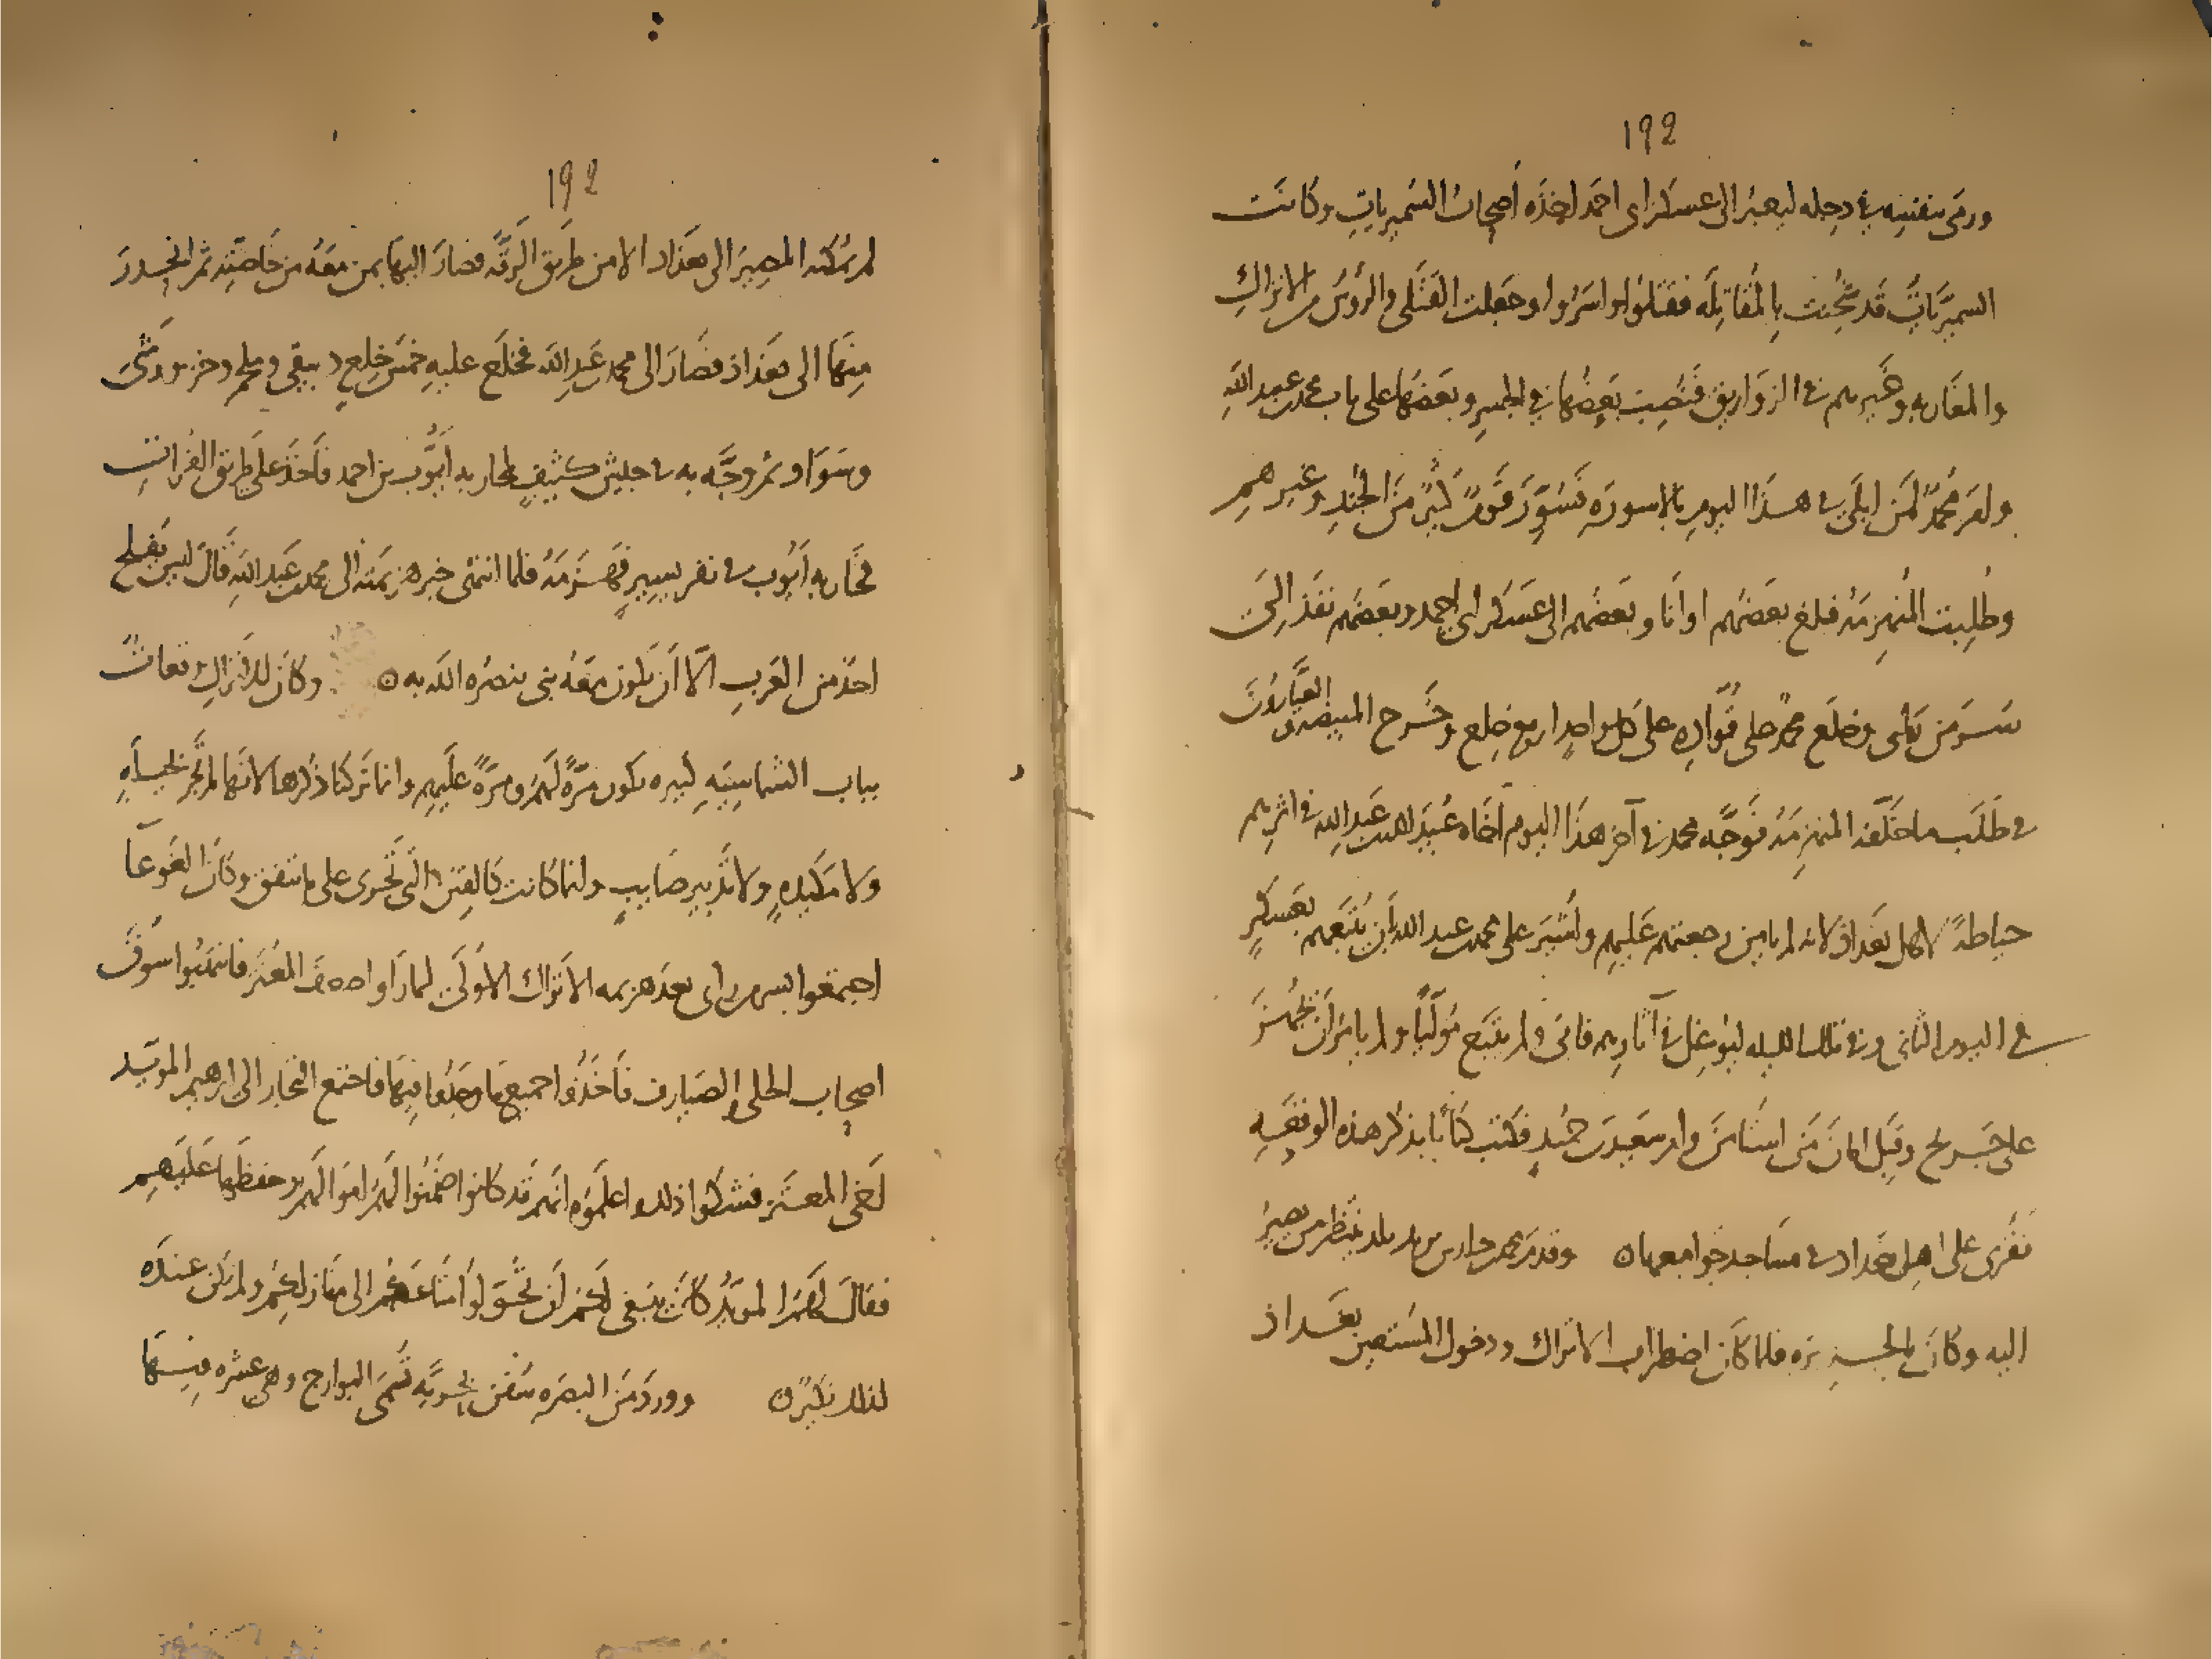 192
ورمى بنفسه في دجله ليعبر الى عسكر ابى احمد اخذه أصحاب السميريات وكانت
السميريات قد شحنت بالمقاتله فقتلوا واسروا وجعلت القتلى والرؤس من الاتراك
والمغاربه وغيرهم في الزواريق فنصبت بعضها في الجسر وبعضها على باب محمد بن عبد الله
وامر محمد لمن ابلى في هذا اليوم بالاسوره فسور قوم كثير من الجند وغيرهم
وطلبت المنهزمه فبلغ بعضهم اوانا وبعضهم الى عسكر ابى احمد وبعضهم نفذ الى
سر من رأى وخلع محمد على قواده على كل واحد اربع خلع وخرج المبيضه والعيارون
في طلب ما خلفه المنهزمه فوجه محمد في آخر هذا اليوم أخاه عبيد الله بن عبد الله في اثرهم
حياطة لاهل بغداد لانه لم يامن رجعتهم عليهم واشير على محمد بن عبد الله بأن يتبعهم بعسكر
في اليوم الثانى وفي تلك الليله ليوغل في آثارهم فابى ولم يتبع موليا ولم يامر ان يجهز
على جريح وقبل امان من استامن وامر سعيد بن حميد فكتب كتابا بذكر هذه الوقعه
فقرى على اهل بغداد في مساجد جوامعها ه وقدم
اليه وكان بالجسيره فلما كان اضطراب الاتراك ودخول المستعين بغداذ
192
لم يمكنه المصير الى بغداد الا من طريق الرقه فصار اليها بمن معه من خاصته ثم انحدر
منها الى بغداذ فصار الى محمد بن عبد الله فخلع عليه خمس خلع دبيقى وملحم وخز ووشى
وسواد ثم وجه به في جيش كثيف لمحاربه أيوب بن احمد فأخذ على طريق الفرات
فحاربه أيوب في نفر يسير فهزمه فلما انتهى خبر هزيمته الى محمد بن عبد الله قال ليس يفلح
احد من العرب الا ان يكون معه نبى ينصره الله به ه وكان للاتراك وقعات
بباب الشماسيه كثيره تكون مرة لهم ومرة عليهم وانما تركنا ذكرها لانها لم تجر بحيله
ولا مكيده ولا تدبير صايب وانما كانت كالفتن التى تجرى على ما يتفق وكان الغوغا
اجتمعوا بسر من راى بعد هزيمه الاتراك الاولى لما راوا ضعف المعتز فانتهبوا سوق
اصحاب الحلى والصيارف فأخذوا جميع ما وجدوا فيها فاجتمع التجار الى ابرهيم المويد
اخى المعتز فشكوا ذلك واعلموه انهم قد كانوا ضمنوا لهم اموالهم وحفظها عليهم
فقال لهم المويد كان ينبغى لكم ان تحولوا متاعكم الى منازلكم ولم يكن عنده
لذلك نكير ه وورد من البصره سفن بحريه تسمى البوارج وهى عشره فيها